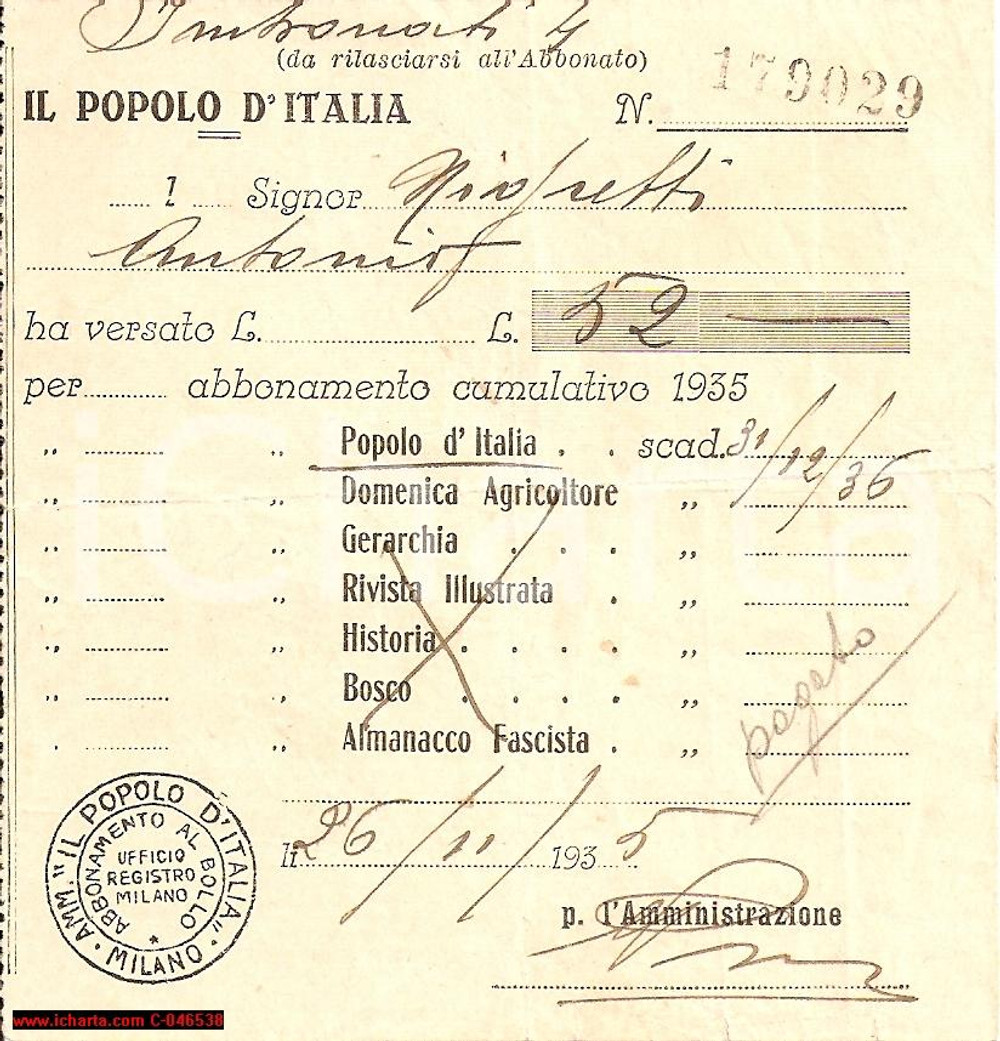 (da rilasciarsi all'Abbonato)
IL POPOLO D'ITALIA N. 179029
Signor
Antonio
ha versato L. L. 52
per abbonamento cumulativo 1935
„ „ Popolo d'Italia . . scad. 31/12/36
„ „ Domenica Agricoltore „
„ „ Gerarchia . . . „
„ „ Rivista Illustrata . „
„ „ Historia . . . . „
„ „ Bosco . . . . „
. „ Almanacco Fascista . „
pagato
li 26/11/1935
p. l'Amministrazione
AMM. "IL POPOLO D'ITALIA" • MILANO •
ABBONAMENTO AL BOLLO *
UFFICIO
REGISTRO
MILANO
www.icharta.com C-046538